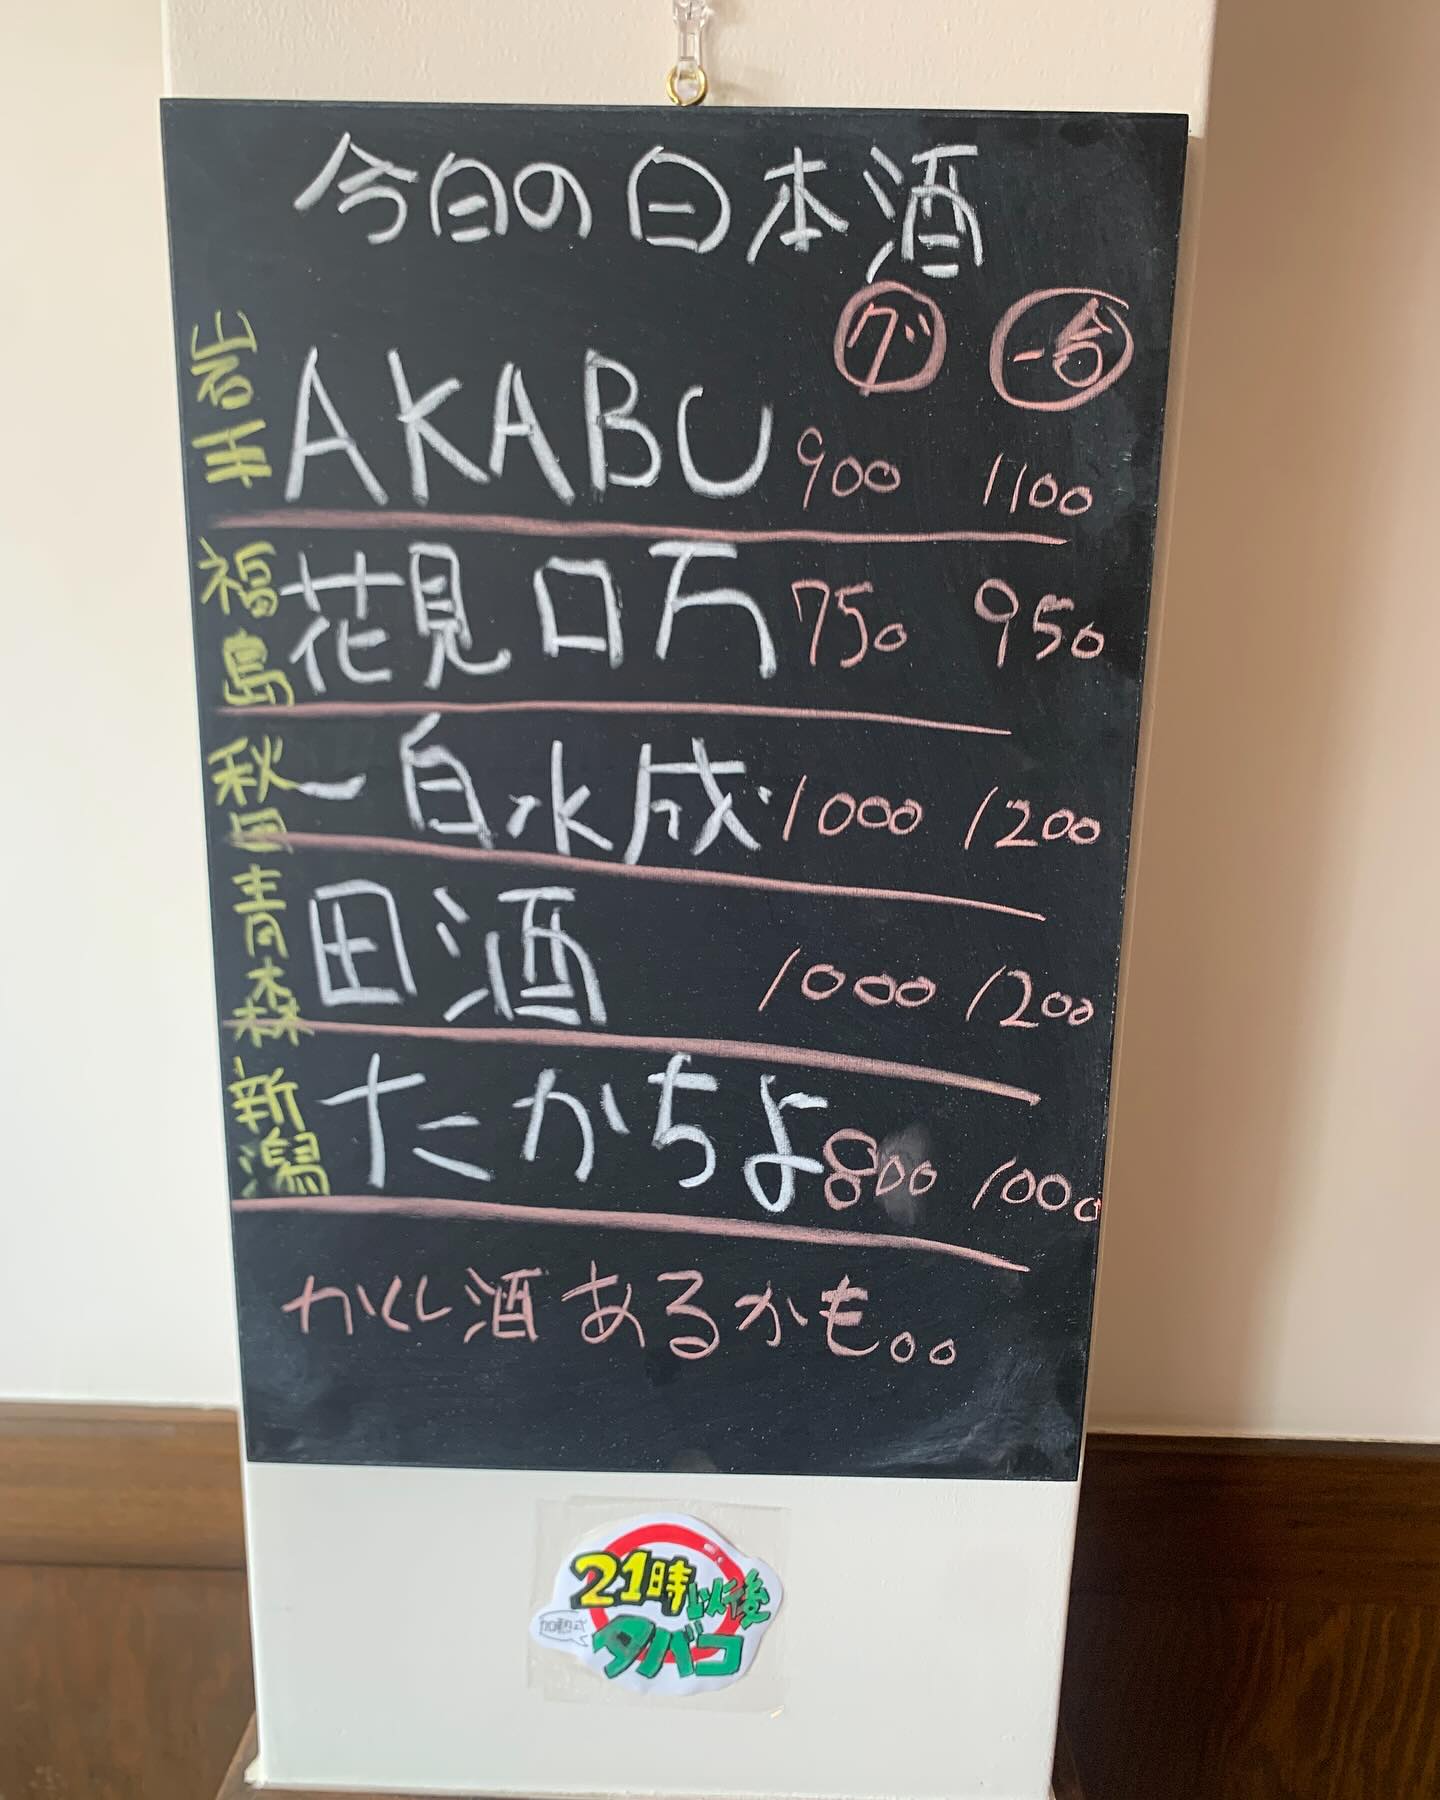 今日の日本酒
グ 一合
岩手 AKABU 900 1100
福島 花見ロ万 750 950
秋田 一白水成 1000 1200
青森 田酒 1000 1200
新潟 たかちよ 800 1000
かくし酒あるかも。。
21時以後
加熱式
タバコ